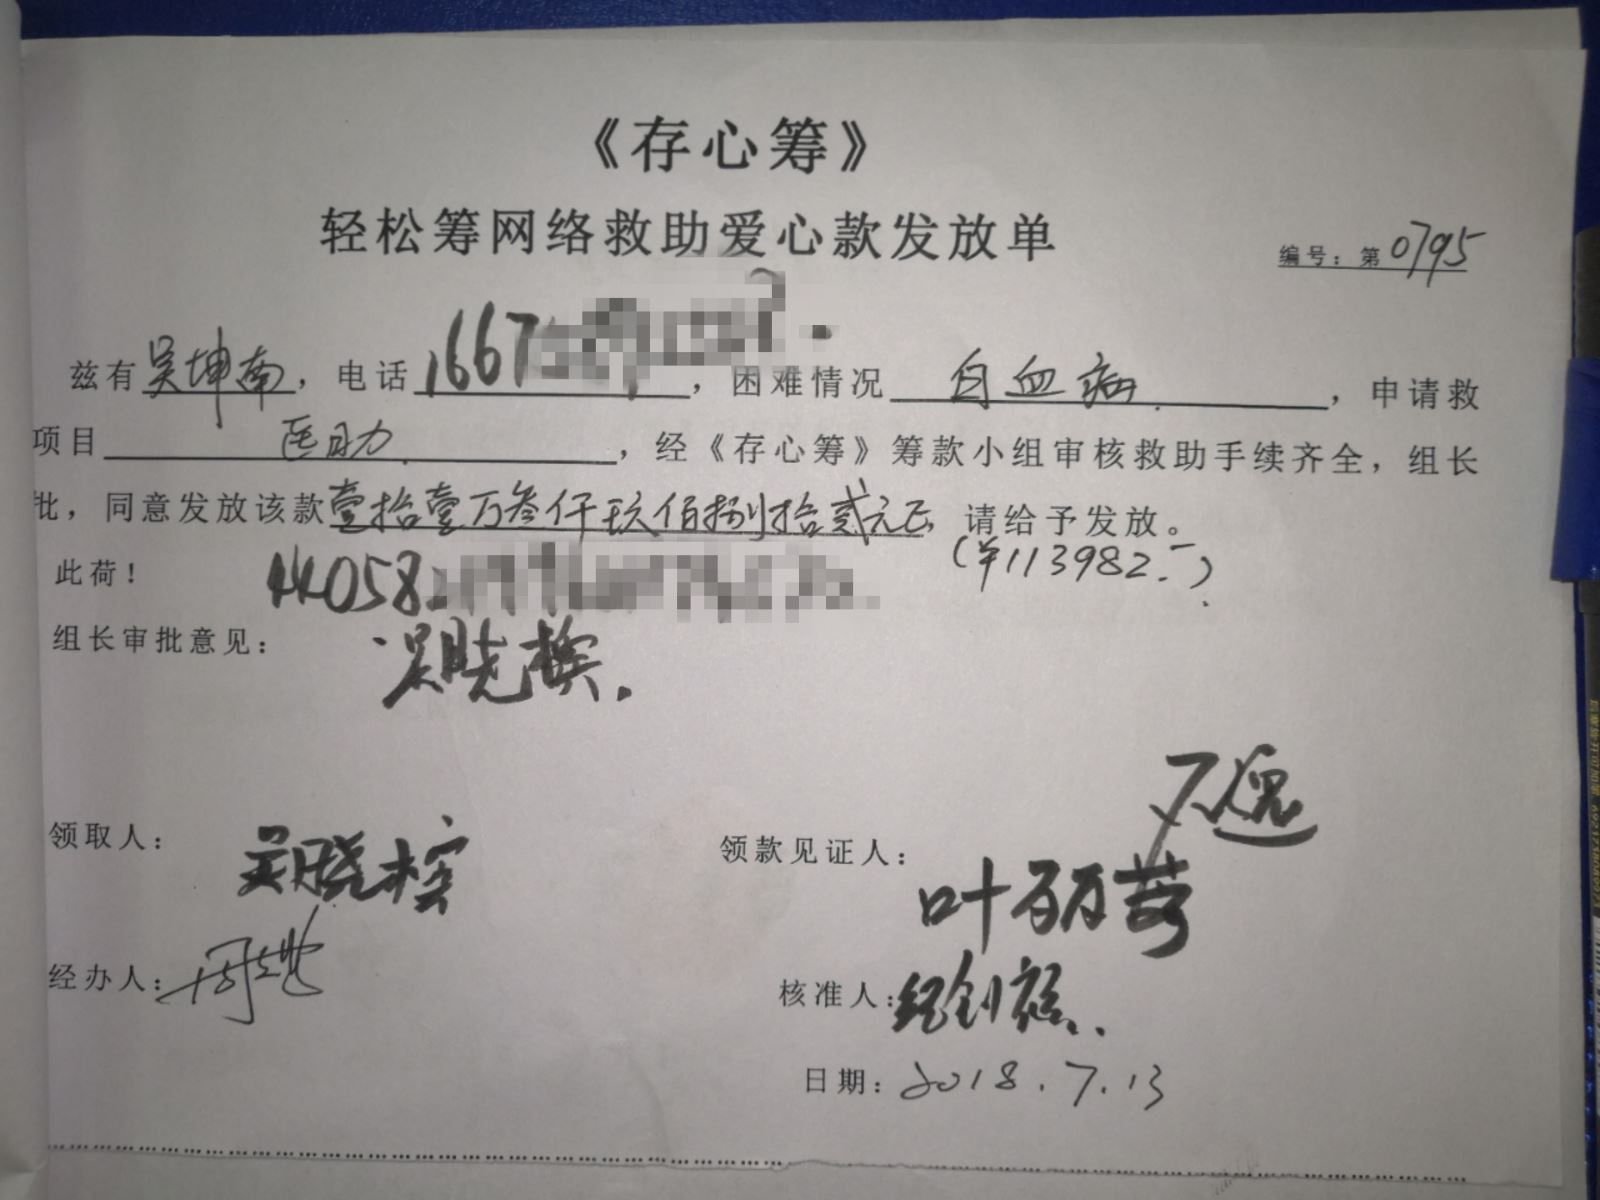 《存心筹》
轻松筹网络救助爱心款发放单
编号：第0795
兹有吴坤南，电话1667，困难情况 白血病，申请救
项目 医助，经《存心筹》筹款小组审核救助手续齐全，组长
批，同意发放该款壹拾壹万叁仟玖佰捌拾贰元正，请给予发放。
(¥113982.-)
此荷！
44058
组长审批意见：吴晓
领取人：吴晓
领款见证人：叶丽
经办人：周
核准人：
日期：2018.7.13